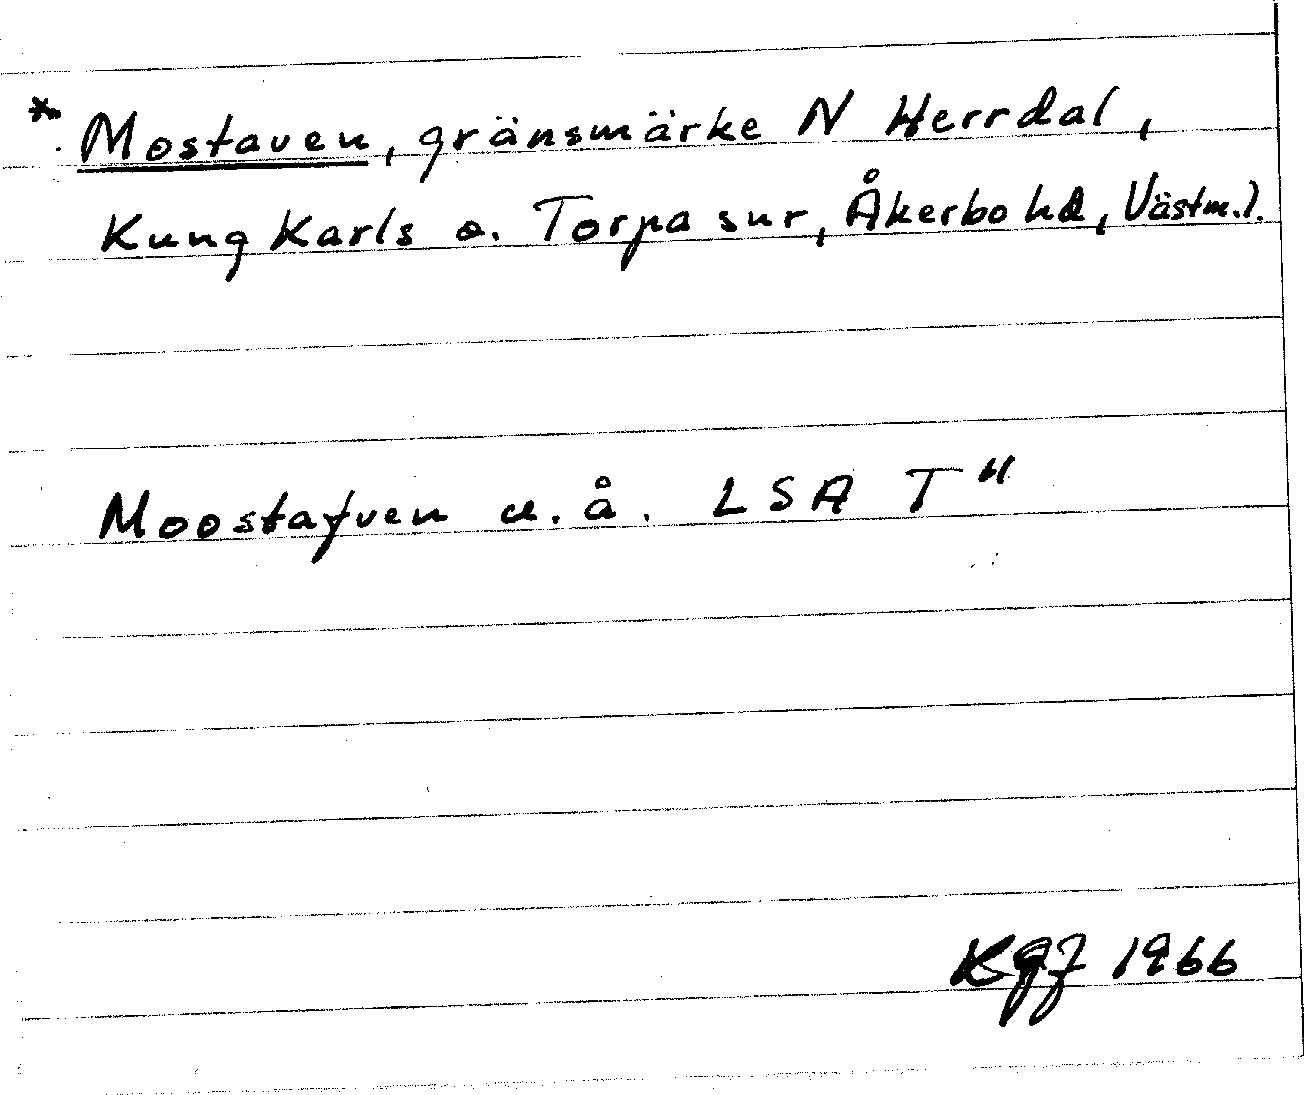 * Mostaven, gränsmärke N Herrdal,
Kung Karls o. Torpa snr, Åkerbo hd, Västm.l.
Moostafven u. å. LSA T"
1966